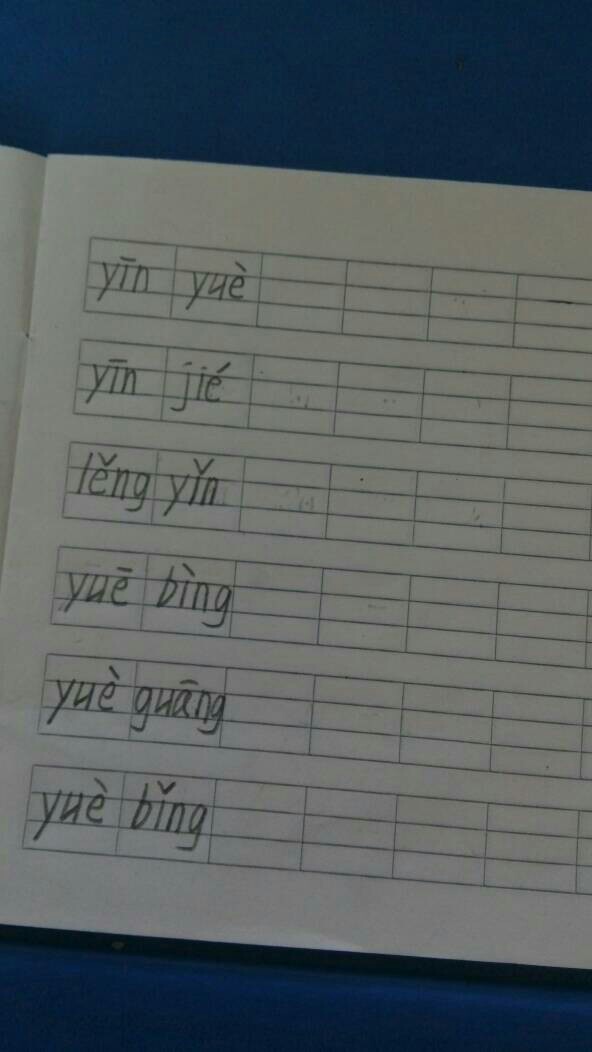 yīn yuè
yīn jié
lěng yǐn
yuē bìng
yuè guāng
yuè bǐng